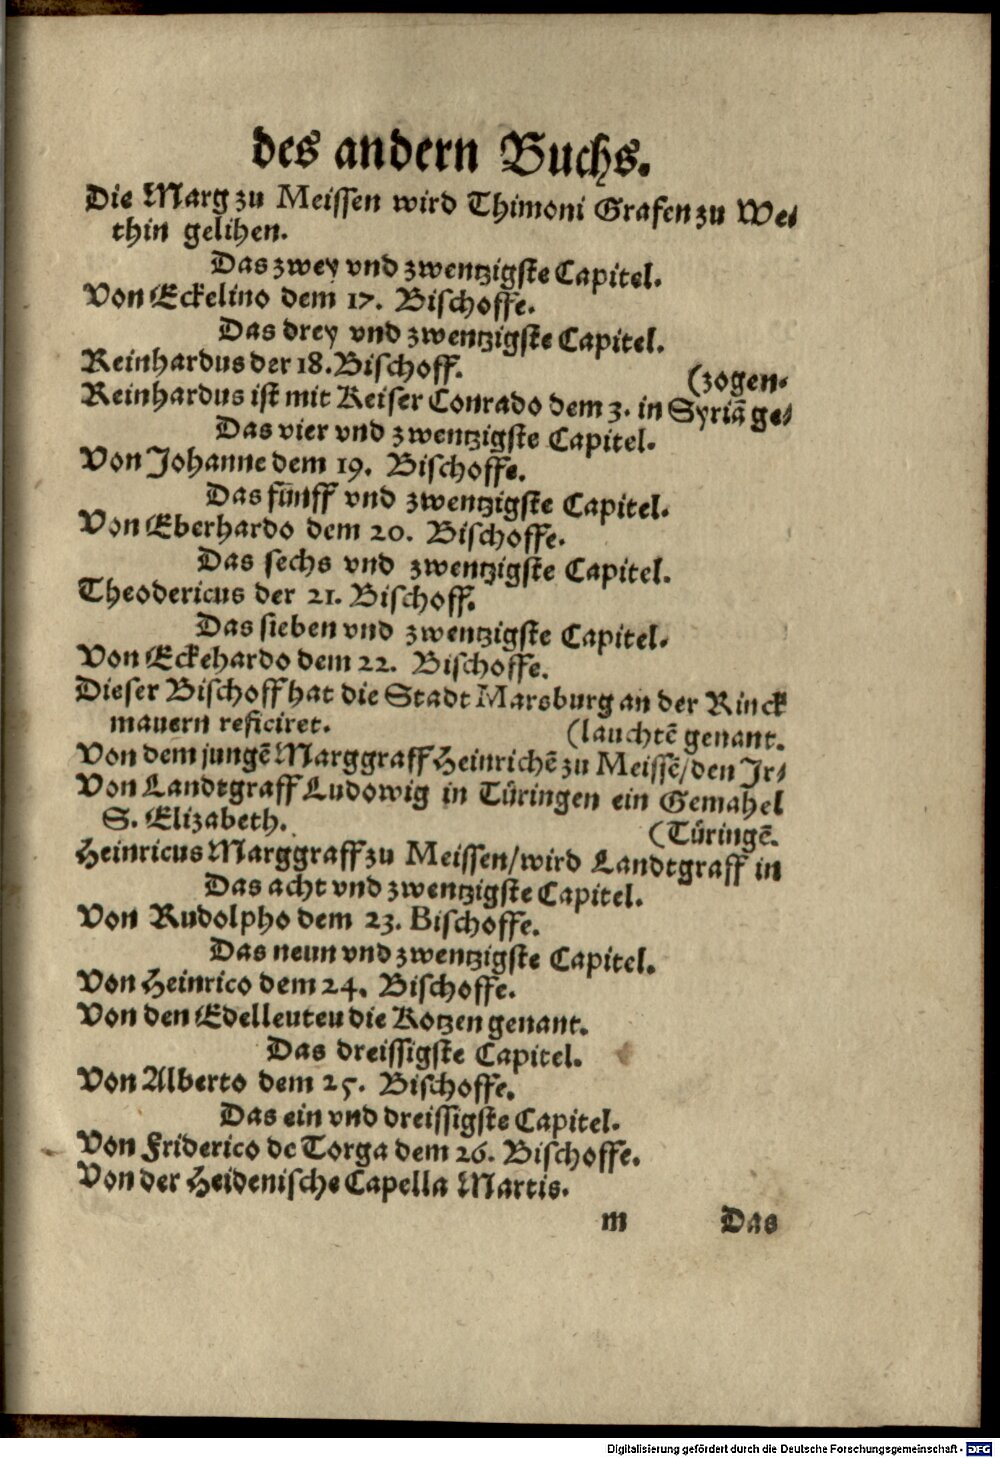 des andern Buchs.
Die Marg zu Meissen wird Thimoni Grafen zu We⸗
thin gelihen.
Das zwey vnd zwentzigste Capitel.
Von Eckelino dem 17. Bischoffe.
Das drey vnd zwentzigste Capitel.
Reinhardus der 18. Bischoff.
(zogen.
Reinhardus ist mit Keiser Conrado dem 3. in Syriā ge⸗
Das vier vnd zwentzigste Capitel.
Von Johanne dem 19. Bischoffe.
Das fünff vnd zwentzigste Capitel.
Von Eberhardo dem 20. Bischoffe.
Das sechs vnd zwentzigste Capitel.
Theodericus der 21. Bischoff.
Das sieben vnd zwentzigste Capitel.
Von Eckehardo dem 22. Bischoffe.
Dieser Bischoff hat die Stadt Marsburg an der Rinck
mauern reficiret.
(lauchtē genant.
Von dem jungē Marggraff Heinrichē zu Meissē/den Jr⸗
Von Landtgraff Ludowig in Türingen ein Gemahel
S. Elizabeth.
(Türingē.
Heinricus Marggraff zu Meissen/wird Landtgraff in
Das acht vnd zwentzigste Capitel.
Von Rudolpho dem 23. Bischoffe.
Das neun vnd zwentzigste Capitel.
Von Heinrico dem 24. Bischoffe.
Von den Edelleuten die Kotzen genant.
Das dreissigste Capitel.
Von Alberto dem 25. Bischoffe.
Das ein vnd dreissigste Capitel.
Von Friderico de Torga dem 26. Bischoffe.
Von der Heidenische Capella Martis.
m Das
Digitalisierung gefördert durch die Deutsche Forschungsgemeinschaft - DFG